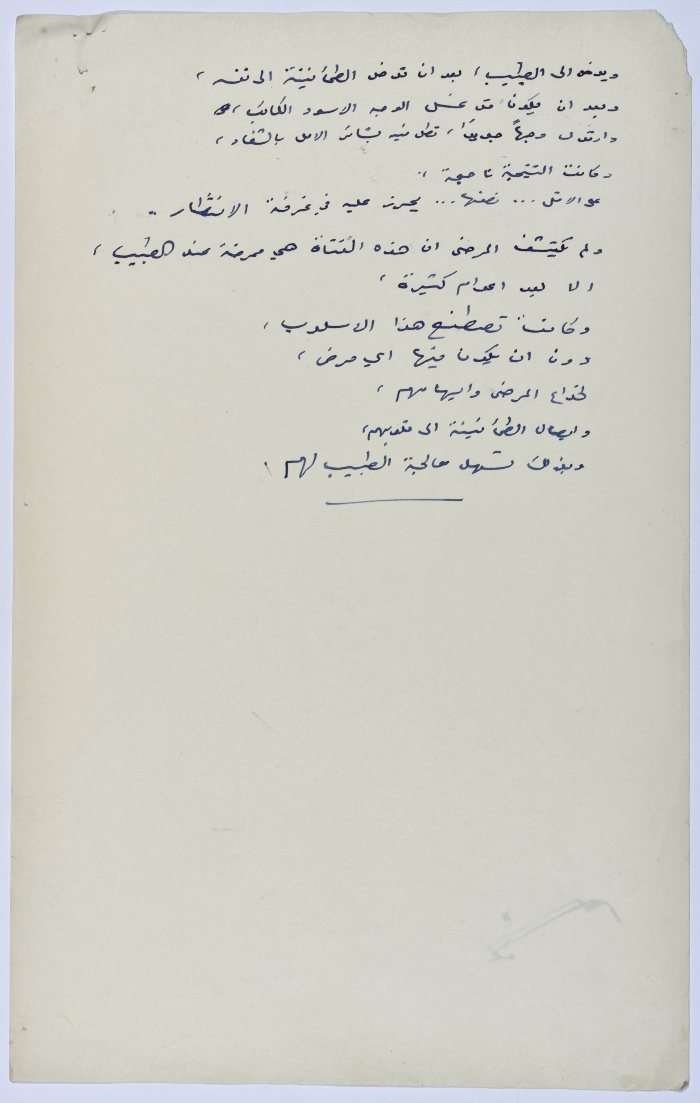 ويدخل الى الطبيب، بعد ان تدخل الطمأنينة الى نفسه،
وبعد ان يكون قد غسل الوجه الاسود الكالح،
وارتدى وجهاً جديداً، تطل منه بشائر الامل بالشفاء،
وكانت النتيجة ناجحة،
على الاقل... نصفها... يحرز عليه في غرفة الانتظار.
ولم يكتشف المرضى ان هذه الفتاة هي ممرضة عند الطبيب،
الا بعد اعوام كثيرة،
وكانت تصطنع هذا الاسلوب،
دون ان يكون فيها اي مرض،
لخداع المرضى وايهامهم،
وايصال الطمأنينة الى قلوبهم،
وبذلك تسهل معالجة الطبيب لهم.